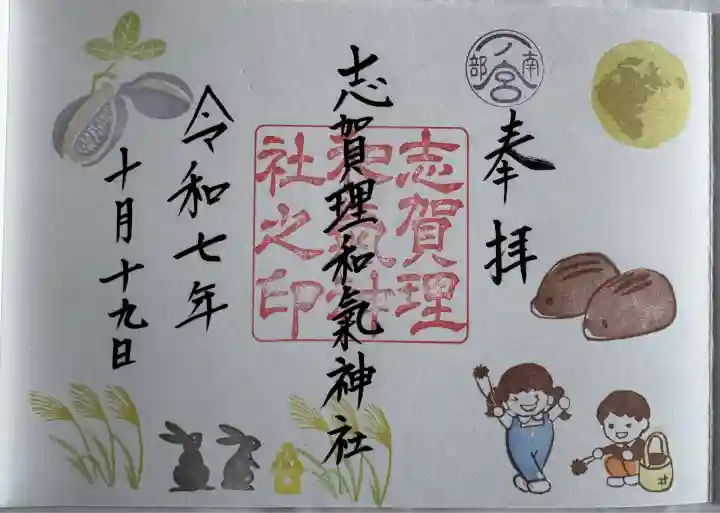 奉拝
南部一ノ宮
志賀理和氣神社
志賀理
和氣神
社之印
令和七年
十月十九日